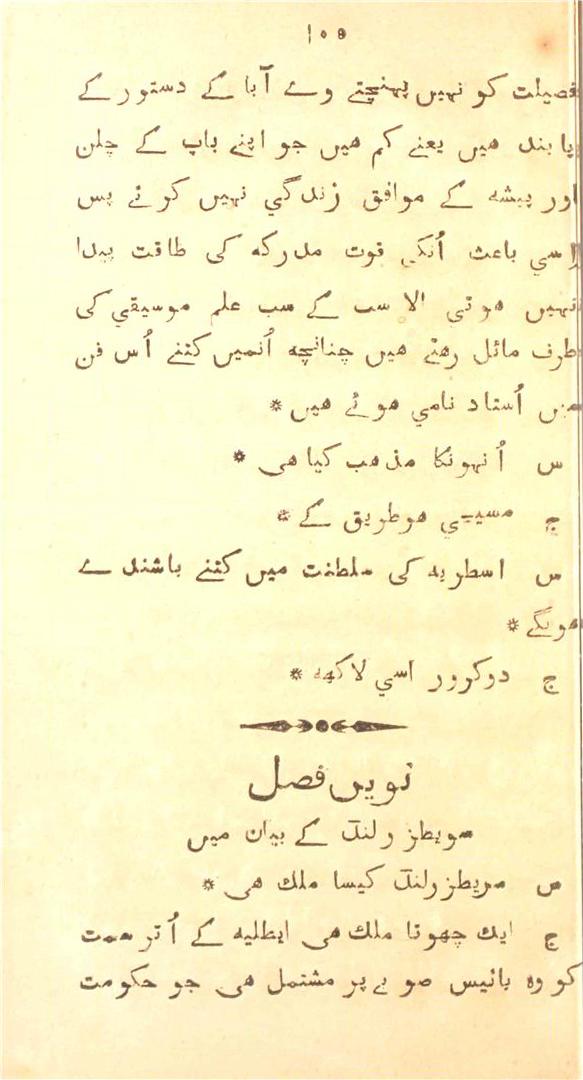 ١٠٥
فصیلت کو نہیں پہنچتے وے آبا کے دستور کے
پابند هیں یعنے کم هیں جو اپنے باپ کے چلن
اور پیشہ کے موافق زندگي نہیں کرتے پس
اِسي باعث اُنکي قوت مدرکہ کی طاقت پیدا
نہیں هوتی الا سب کے سب علم موسیقي کی
طرف مائل رهتے هیں چنانچہ اُنمیں کتنے اُس فن
میں اُستاد نامي هوئے هیں *
س اُنہونکا مذهب کیا هی *
ج مسیحي هر طریق کے *
س اسطریہ کی سلطنت میں کتنے باشندے
هونگے *
ج دو کرور اسي لاکھہ *
نویں فصل
سویطزرلنڈ کے بیان میں
س سویطزرلنڈ کیسا ملك هی *
ج ایك چھوٹا ملك هی ایطلیه کے اُتر سمت
کو وہ بائیس صوبے پر مشتمل هی جو حکومت